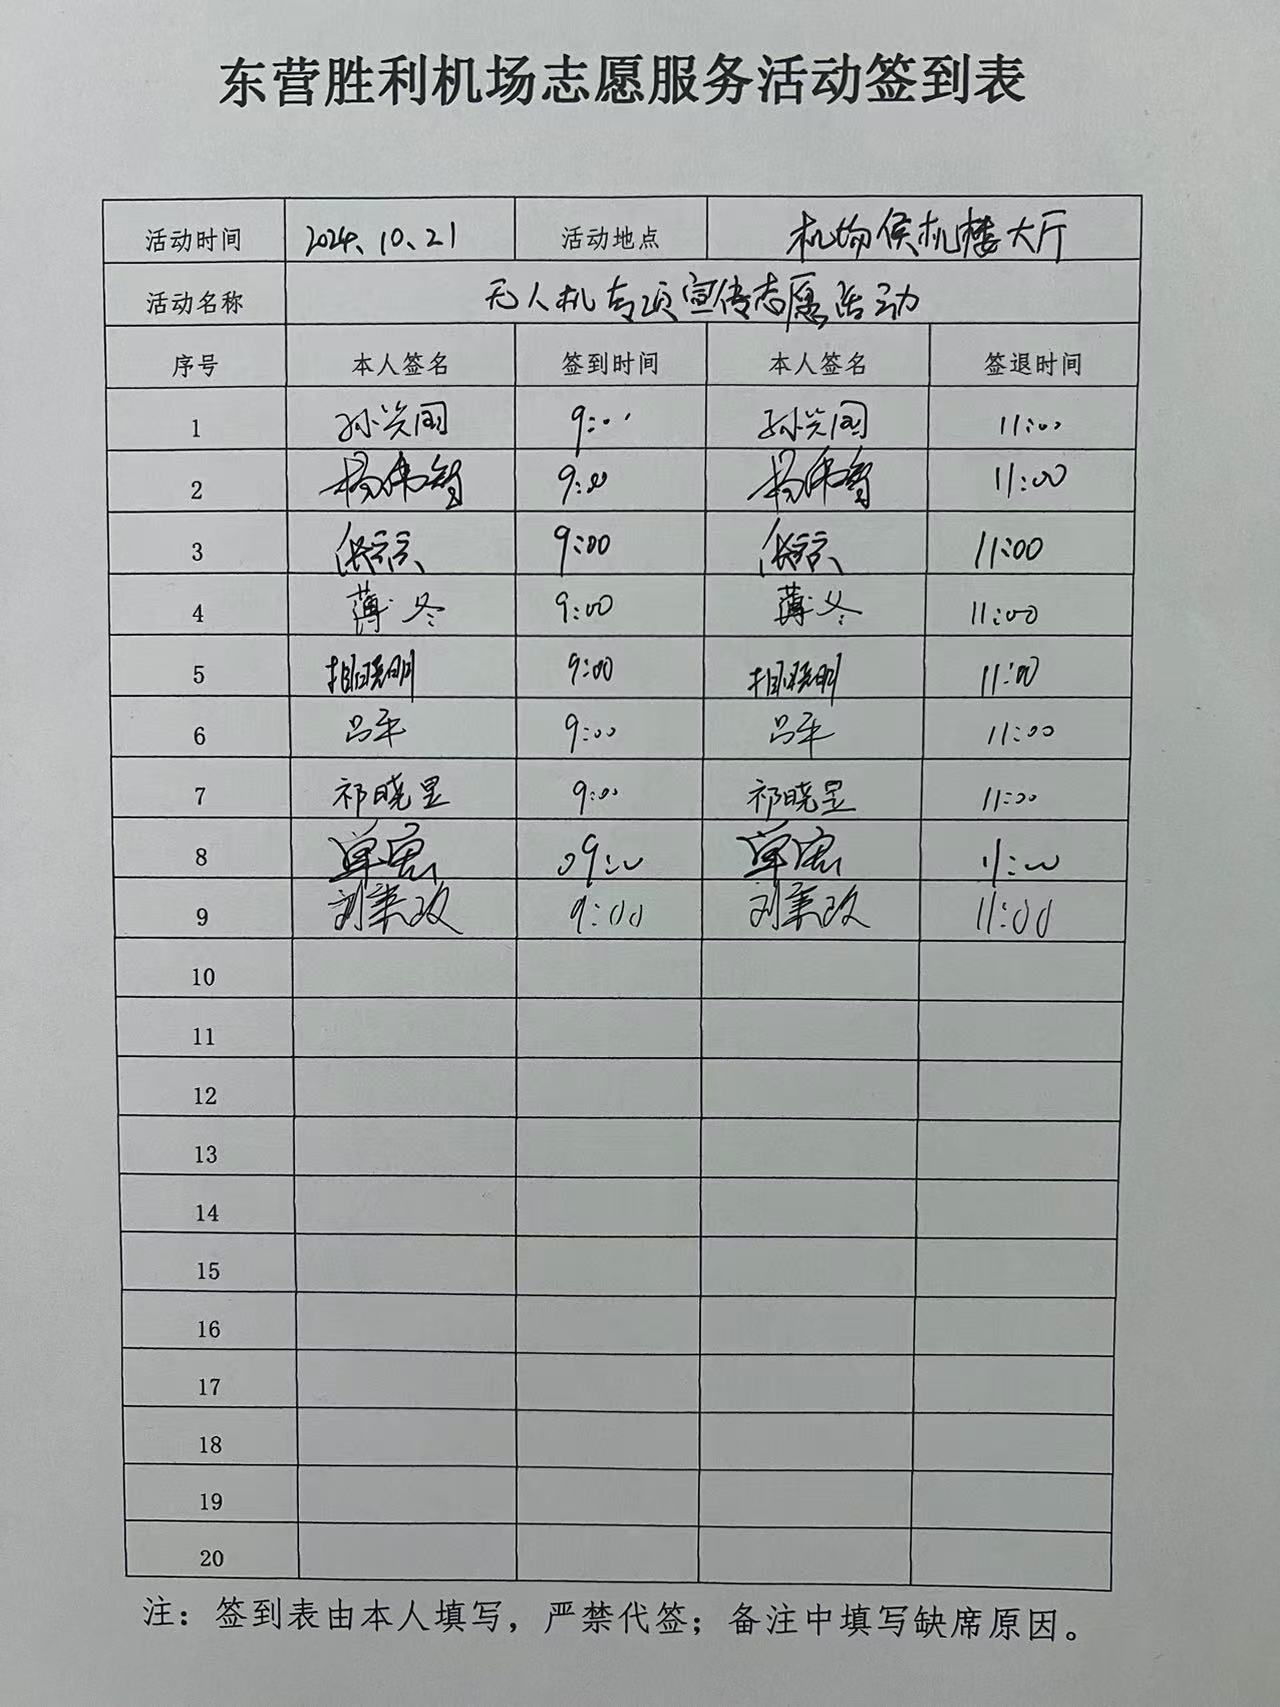 东营胜利机场志愿服务活动签到表
活动时间 2024、10、21 活动地点 机场侯机楼大厅
活动名称 无人机专项宣传志愿活动
序号 本人签名 签到时间 本人签名 签退时间
1 孙兴国 9:00 孙兴国 11:00
2 杨伟智 9:00 杨伟智 11:00
3 9:00 11:00
4 薄冬 9:00 薄冬 11:00
5 相晓明 9:00 相晓明 11:00
6 吕平 9:00 吕平 11:00
7 祁晓昱 9:00 祁晓昱 11:00
8 单宏 09:00 单宏 11:00
9 9:00 11:00
10
11
12
13
14
15
16
17
18
19
20
注：签到表由本人填写，严禁代签；备注中填写缺席原因。